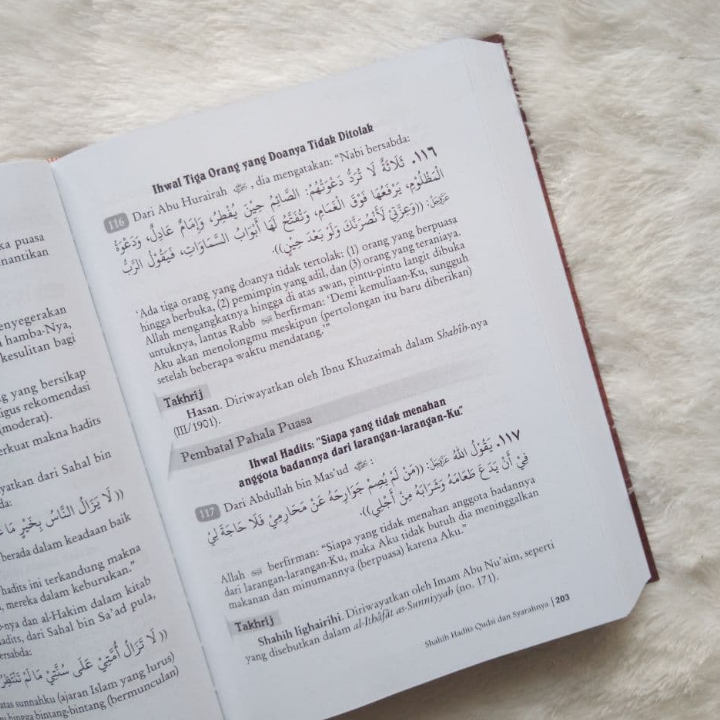 ka puasa
nantikan
nyegerakan
hamba-Nya,
kesulitan bagi
g yang bersikap
igus rekomendasi
(moderat).
erkuat makna hadits
yatkan dari Sahal bin
da:
(( لَا يَزَالُ النَّاسُ بِخَيْرٍ مَا
berada dalam keadaan baik
hadits ini terkandung makna
, mereka dalam keburukan."
-nya dan al-Hakim dalam kitab
adits, dari Sahal bin Sa'ad pula,
rsabda:
(( لَا تَزَالُ أُمَّتِيْ عَلَى سُنَّتِيْ مَا لَمْ تَنْتَظِرْ
atas sunnahku (ajaran Islam yang lurus)
hingga bintang-bintang (bermunculan)
Ihwal Tiga Orang yang Doanya Tidak Ditolak
116 Dari Abu Hurairah ﷺ, dia mengatakan: "Nabi bersabda:
١١٦. ثَلَاثَةٌ لَا تُرَدُّ دَعْوَتُهُمْ: الصَّائِمُ حِيْنَ يُفْطِرُ، وَإِمَامٌ عَادِلٌ، وَدَعْوَةُ
الْمَظْلُوْمِ، يَرْفَعُهَا فَوْقَ الْغَمَامِ، وَتُفْتَحُ لَهَا أَبْوَابُ السَّمَاوَاتِ، فَيَقُوْلُ الرَّبُّ
عَزَّوَجَلَّ: ((وَعِزَّتِيْ لَأَنْصُرَنَّكَ وَلَوْ بَعْدَ حِيْنٍ)).
'Ada tiga orang yang doanya tidak tertolak: (1) orang yang berpuasa
hingga berbuka, (2) pemimpin yang adil, dan (3) orang yang teraniaya.
Allah mengangkatnya hingga di atas awan, pintu-pintu langit dibuka
untuknya, lantas Rabb berfirman: 'Demi kemuliaan-Ku, sungguh
Aku akan menolongmu meskipun (pertolongan itu baru diberikan)
setelah beberapa waktu mendatang.'"
Takhrij
Hasan. Diriwayatkan oleh Ibnu Khuzaimah dalam Shahih-nya
(III/1901).
Pembatal Pahala Puasa
Ihwal Hadits: "Siapa yang tidak menahan
anggota badannya dari larangan-larangan-Ku."
117 Dari Abdullah bin Mas'ud :
١١٧. يَقُوْلُ اللهُ عَزَّوَجَلَّ: ((مَنْ لَمْ يَصُمْ جَوَارِحُهُ عَنْ مَحَارِمِيْ فَلَا حَاجَةَ لِيْ
فِيْ أَنْ يَدَعَ طَعَامَهُ وَشَرَابَهُ مِنْ أَجْلِيْ)).
Allah berfirman: "Siapa yang tidak menahan anggota badannya
dari larangan-larangan-Ku, maka Aku tidak butuh dia meninggalkan
makanan dan minumannya (berpuasa) karena Aku."
Takhrij
Shahih lighairihi. Diriwayatkan oleh Imam Abu Nu'aim, seperti
yang disebutkan dalam al-Ithâfât as-Sunniyyah (no. 171).
Shahih Hadits Qudsi dan Syarahnya | 203